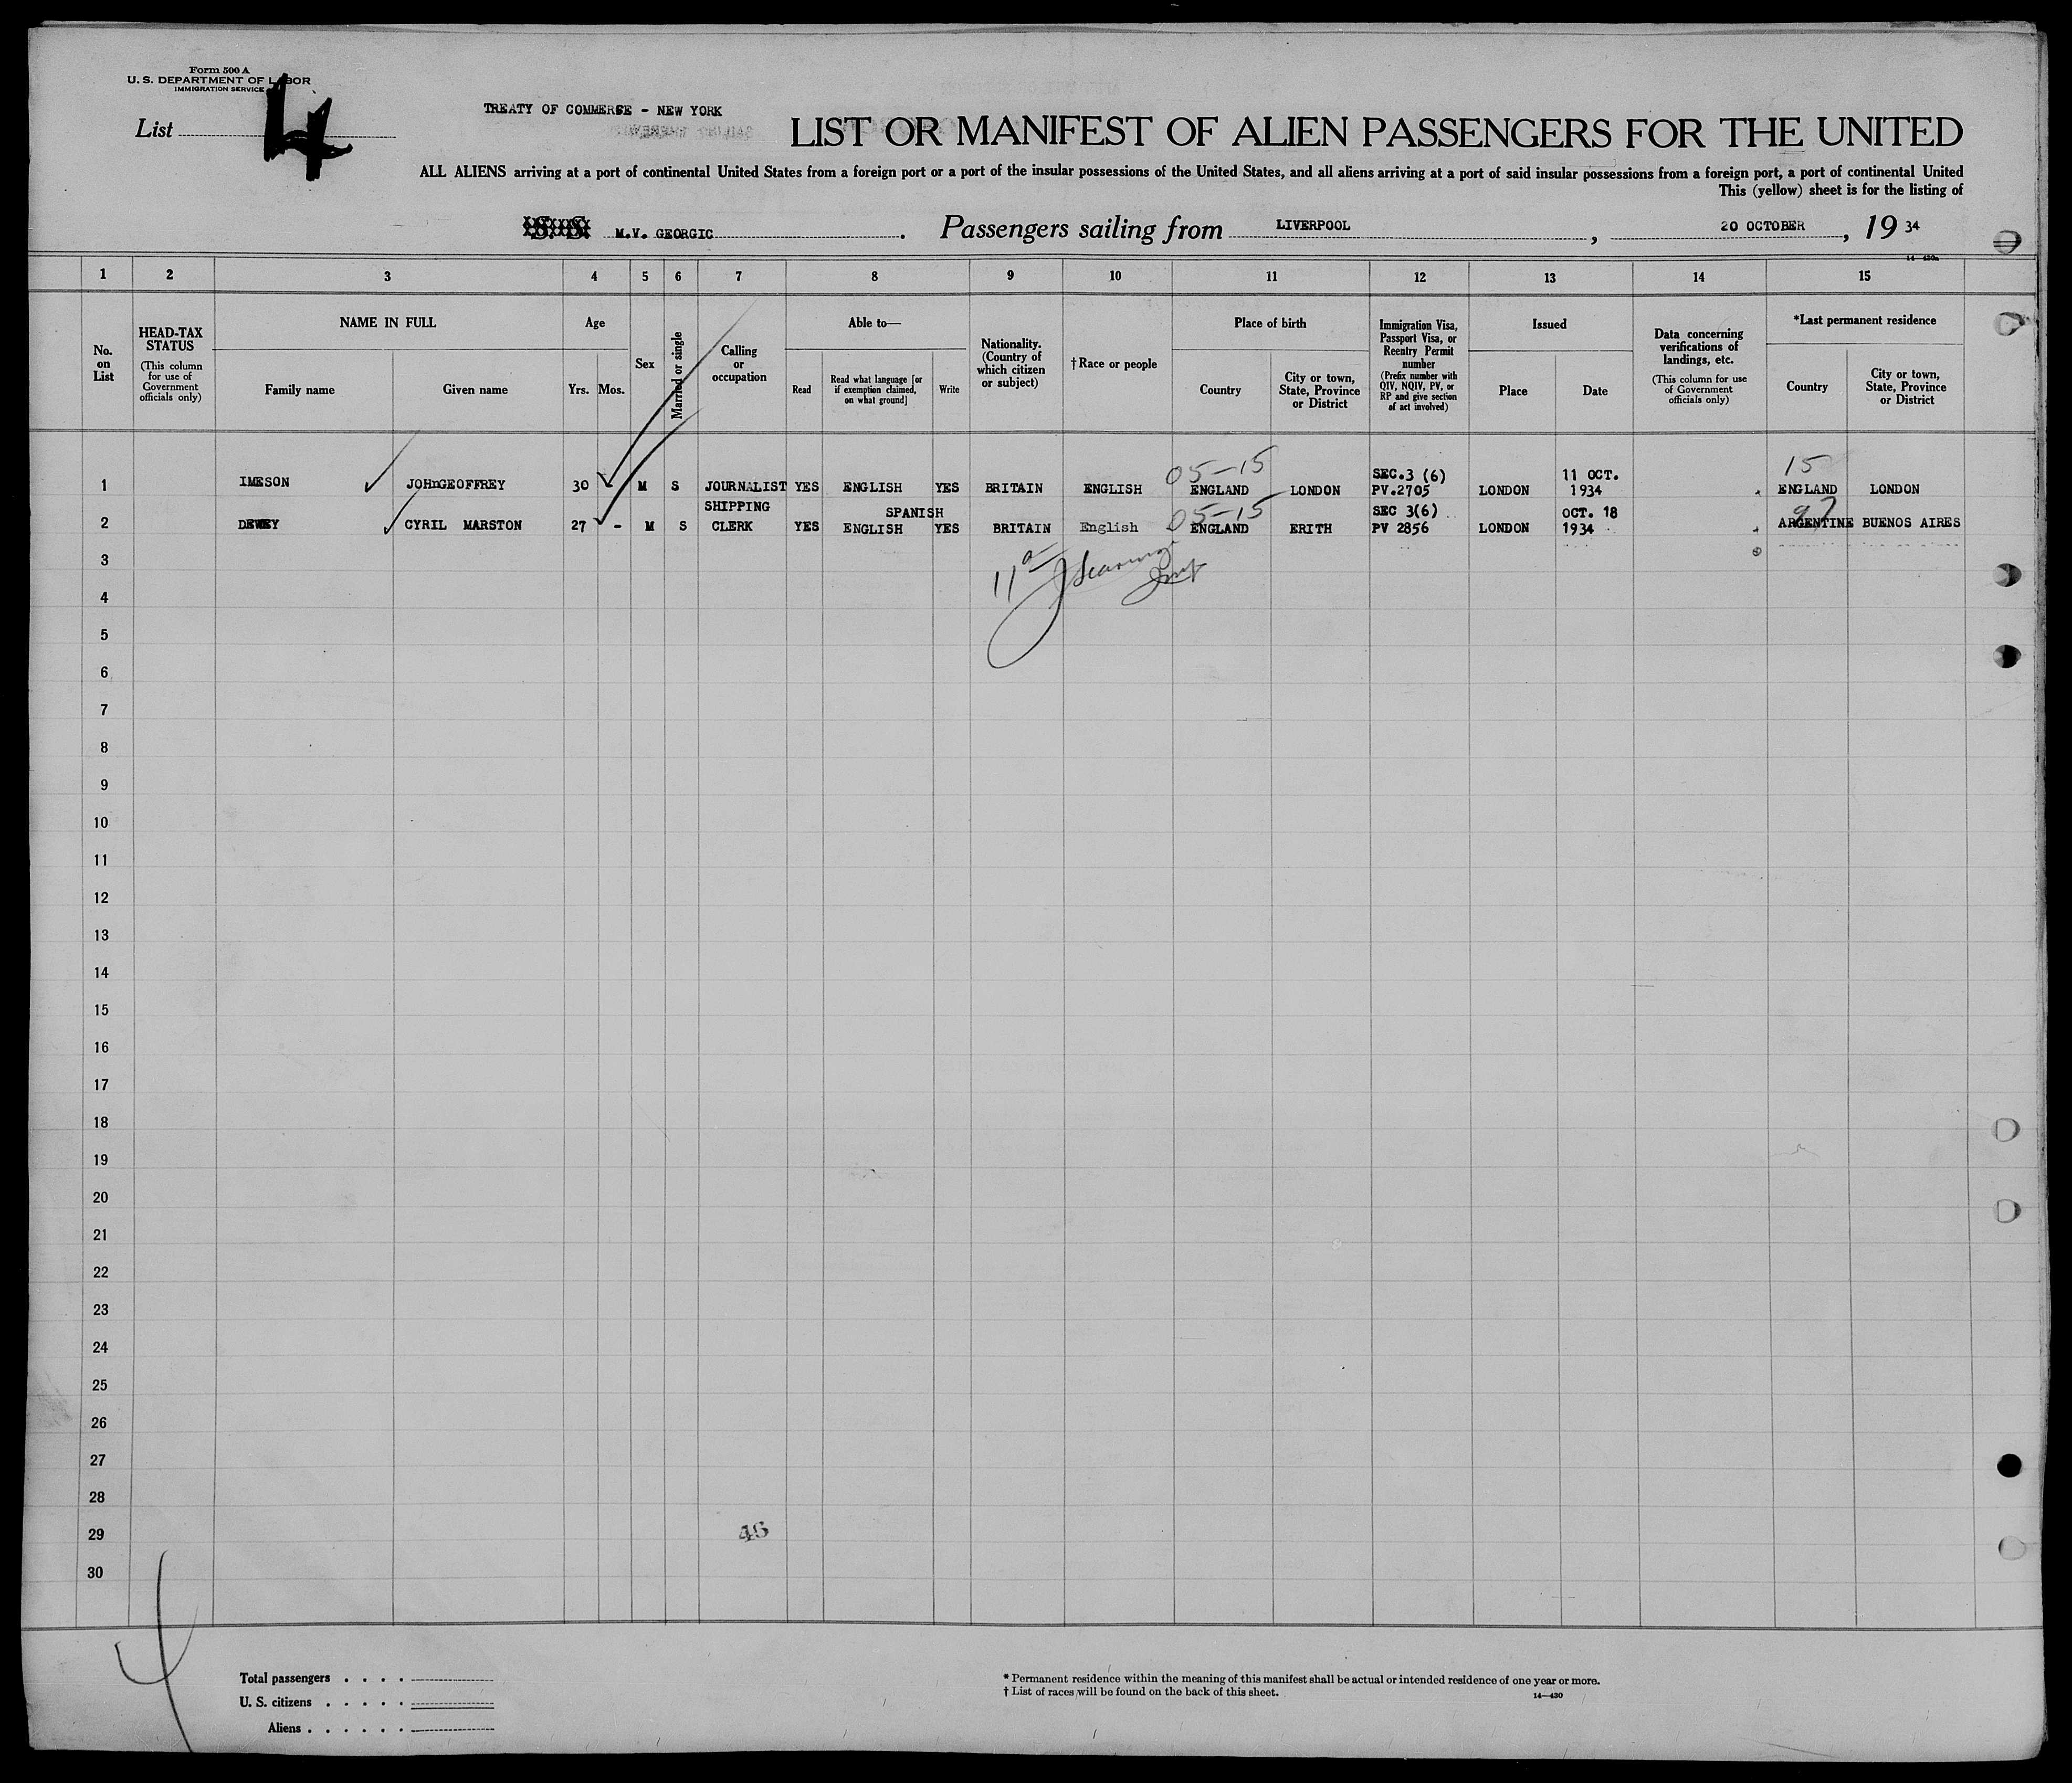 Form 500 A
U. S. DEPARTMENT OF LABOR
IMMIGRATION SERVICE
List 4
TREATY OF COMMERSE - NEW YORK
LIST OR MANIFEST OF ALIEN PASSENGERS FOR THE UNITED
ALL ALIENS arriving at a port of continental United States from a foreign port or a port of the insular possessions of the United States, and all aliens arriving at a port of said insular possessions from a foreign port, a port of continental United
This (yellow) sheet is for the listing of
S. S. M.V. GEORGIC. Passengers sailing from LIVERPOOL, 20 OCTOBER, 19 34
14—430a
1 2 3 4 5 6 7 8 9 10 11 12 13 14 15
No. on List
HEAD-TAX STATUS
(This column for use of Government officials only)
NAME IN FULL
Family name
Given name
Age
Yrs.
Mos.
Sex
Married or single
Calling or occupation
Able to—
Read
Read what language [or if exemption claimed, on what ground]
Write
Nationality. (Country of which citizen or subject)
†Race or people
Place of birth
Country
City or town, State, Province or District
Immigration Visa, Passport Visa, or Reentry Permit number
(Prefix number with QIV, NQIV, PV, or RP and give section of act involved)
Issued
Place
Date
Data concerning verifications of landings, etc.
(This column for use of Government officials only)
*Last permanent residence
Country
City or town, State, Province or District
05-15 SEC.3 (6) 11 OCT. 15
1 IMESON JOHnGEOFFREY 30 - M S JOURNALIST YES ENGLISH YES BRITAIN ENGLISH ENGLAND LONDON PV.2705 LONDON 1934 ENGLAND LONDON
SHIPPING SPANISH 05-15 SEC 3(6) OCT. 18 97
2 DEWEY CYRIL MARSTON 27 - M S CLERK YES ENGLISH YES BRITAIN English ENGLAND ERITH PV 2856 LONDON 1934 ARGENTINE BUENOS AIRES
3
4
5
6
7
8
9
10
11
12
13
14
15
16
17
18
19
20
21
22
23
24
25
26
27
28
29
46
30
4
Total passengers
U. S. citizens
Aliens
* Permanent residence within the meaning of this manifest shall be actual or intended residence of one year or more.
† List of races will be found on the back of this sheet.
14—430